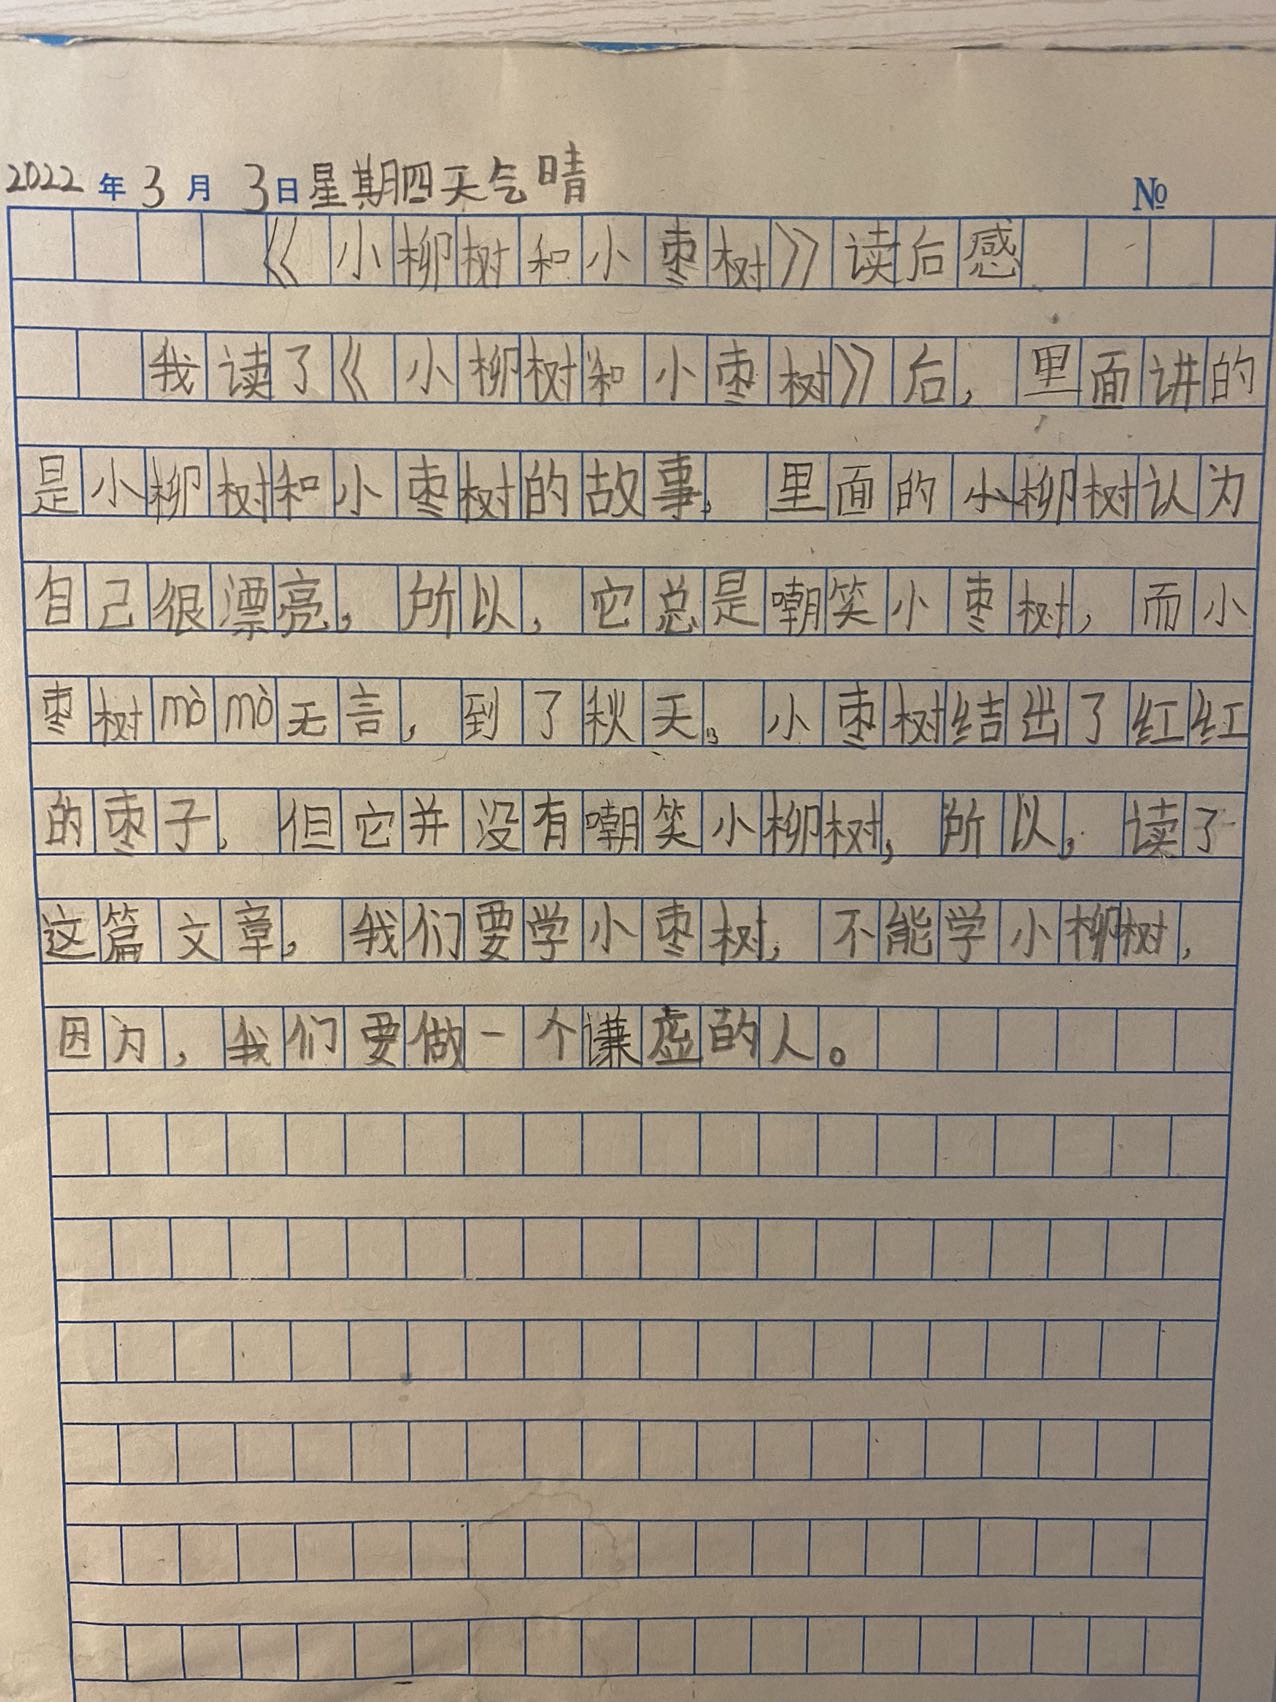 2022年3月3日星期四天气晴 №
《小柳树和小枣树》读后感
我读了《小柳树和小枣树》后，里面讲的
是小柳树和小枣树的故事，里面的小柳树认为
自己很漂亮，所以，它总是嘲笑小枣树，而小
枣树mòmò无言，到了秋天，小枣树结出了红红
的枣子，但它并没有嘲笑小柳树，所以，读了
这篇文章，我们要学小枣树，不能学小柳树，
因为，我们要做一个谦虚的人。